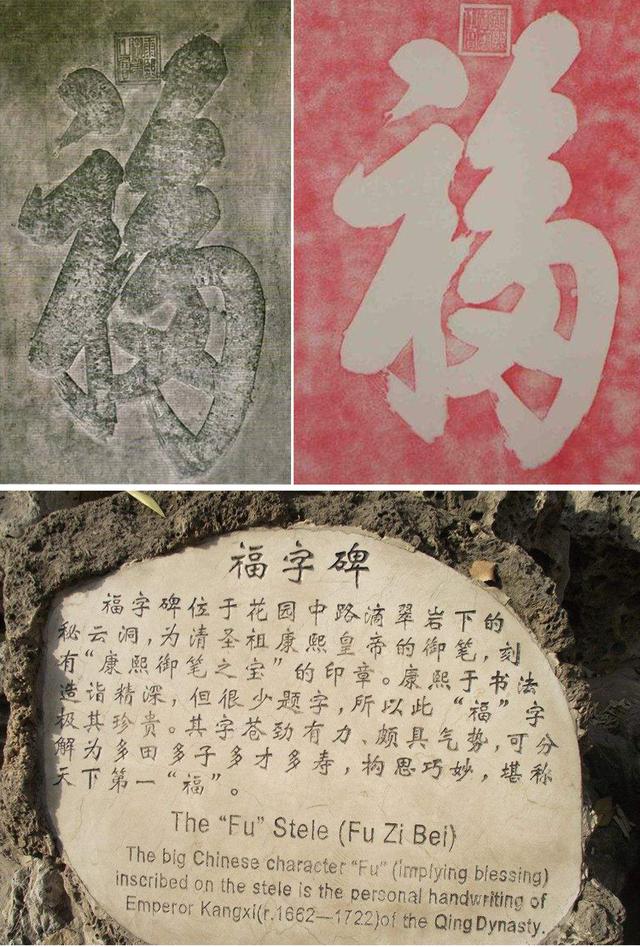 福
福
福字碑
福字碑位于花园中路滴翠岩下的
秘云洞，为清圣祖康熙皇帝的御笔，刻
有“康熙御笔之宝”的印章。康熙于书法
造诣精深，但很少题字，所以此“福”字
极其珍贵。其字苍劲有力、颇具气势，可分
解为多田多子多才多寿，构思巧妙，堪称
天下第一“福”。
The “Fu” Stele (Fu Zi Bei)
The big Chinese character “Fu” (implying blessing)
inscribed on the stele is the personal handwriting of
Emperor Kangxi(r.1662—1722)of the Qing Dynasty.